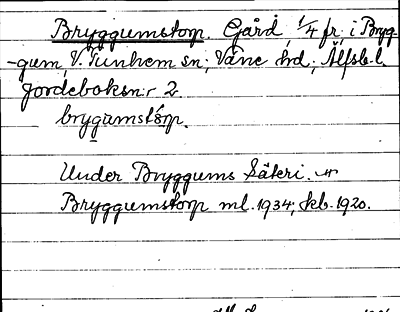 Bryggumstorp. Gård 1/4 fr. i Bryg-
-gum, V. Tunhem sn; Väne hd; Älfsb. l.
Jordeboksn:r 2.
brygumstorp.
Under Bryggums Säteri.
Bryggumstorp ml. 1934, kb. 1920.